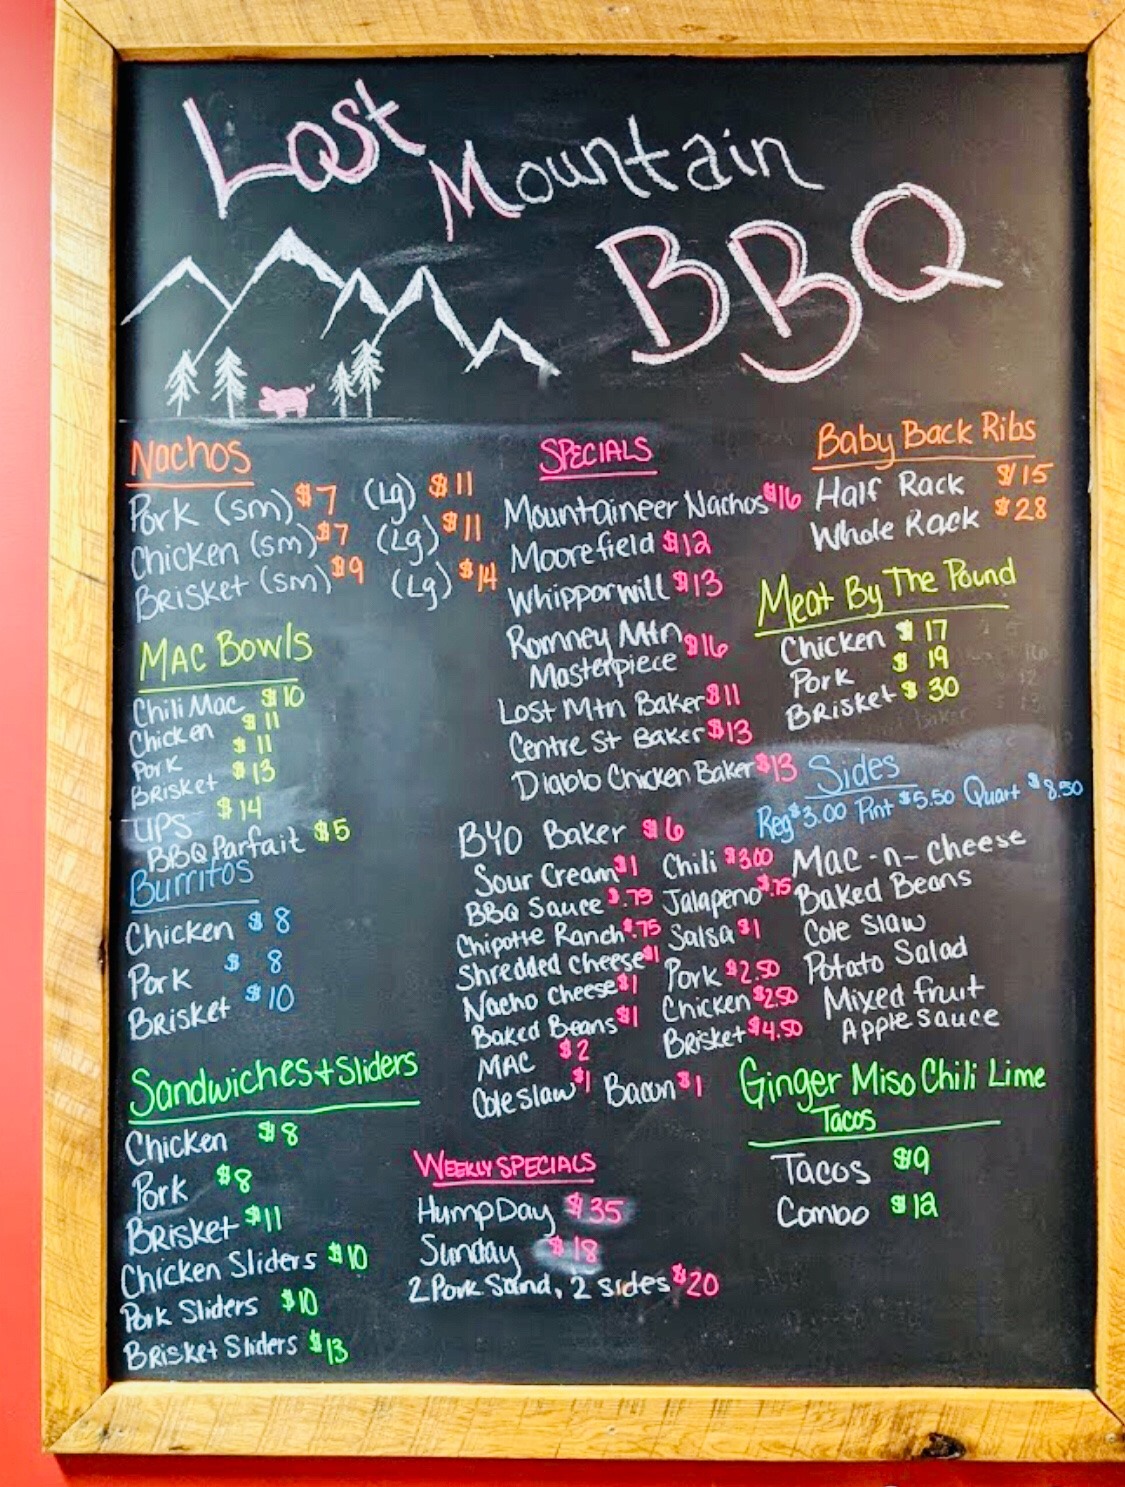 Lost
Mountain
BBQ
Nachos
Pork (sm) $7 (Lg) $11
Chicken (sm) $7 (Lg) $11
Brisket (sm) $9 (Lg) $14
Mac Bowls
Chili Mac $10
Chicken $11
Pork $11
Brisket $13
UPS $14
BBQ Parfait $5
Burritos
Chicken $8
Pork $8
Brisket $10
Sandwiches + Sliders
Chicken $8
Pork $8
Brisket $11
Chicken Sliders $10
Pork Sliders $10
Brisket Sliders $13
SPECIALS
Mountaineer Nachos $16
Moorefield $12
Whipporwill $13
Romney Mtn
Masterpiece $16
Lost Mtn Baker $11
Centre St Baker $13
Diablo Chicken Baker $13
BYO Baker $6
Sour Cream $1 Chili $3.00
BBQ Sauce $.75 Jalapeno $.75
Chipotle Ranch $.75 Salsa $1
Shredded Cheese $1 Pork $2.50
Nacho Cheese $1 Chicken $2.50
Baked Beans $1 Brisket $4.50
MAC $2
Coleslaw $1 Bacon $1
WEEKLY SPECIALS
Hump Day $35
Sunday $18
2 Pork Sand, 2 sides $20
Baby Back Ribs
Half Rack $15
Whole Rack $28
Meat By The Pound
Chicken $17
Pork $19
Brisket $30
Sides
Reg $3.00 Pint $5.50 Quart $8.50
Mac-n-cheese
Baked Beans
Cole Slaw
Potato Salad
Mixed fruit
Apple sauce
Ginger Miso Chili Lime
Tacos
Tacos $9
Combo $12